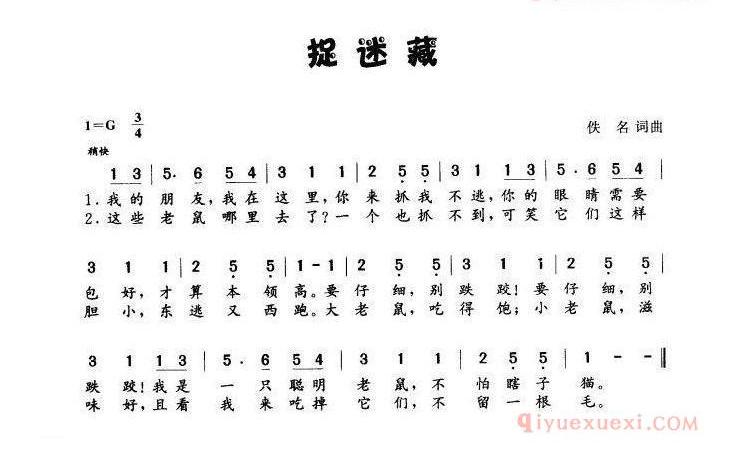 捉迷藏
1=G 3/4
佚 名 词曲
稍快
1 3 | 5· 6 5 4 | 3 1 1 | 2 5 5 | 3 1 1 3 | 5· 6 5 4 |
1. 我的 朋友,我在 这里,你 来 抓我 不逃,你的 眼睛需要
2. 这些 老鼠哪里 去了?一 个 也抓 不到,可笑 它们这样
3 1 1 | 2 5 5 | 1 - 1 | 2 5 5 | 3 1 1 | 2 5 5 |
包好,才 算本领 高。要 仔细,别 跌跤!要 仔细,别
胆小,东 逃又西 跑。大 老鼠,吃 得饱;小 老鼠,滋
3 1 1 3 | 5· 6 5 4 | 3 1 1 | 2 5 5 | 1 - - ‖
跌跤!我是 一只聪明 老鼠,不 怕瞎子 猫。
味好,且看 我来吃掉 它们,不 留一根 毛。
qiyuexuexi.com